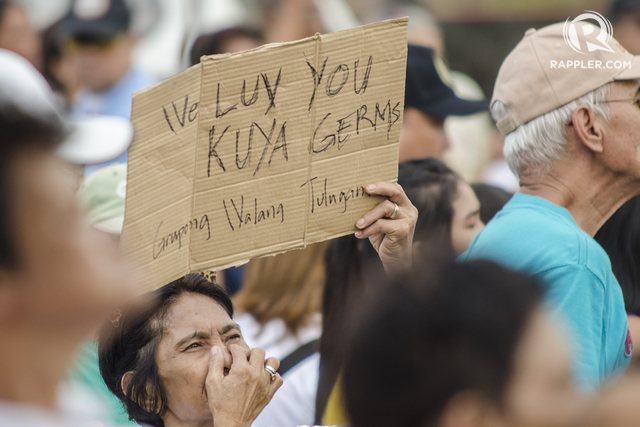 We LUV YOU
KUYA GERMS
Grupong Walang Tulugan
RAPPLER.COM